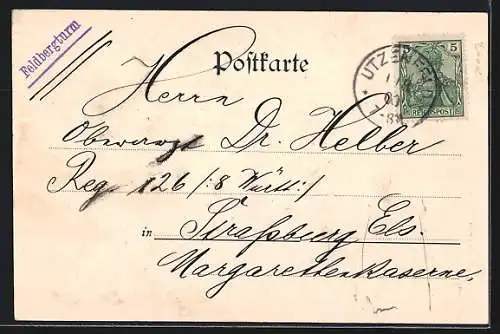 Feldbergturm
Postkarte
UTZENFELD
5
REICHSPOST
Herrn
Oberarzt Dr. Helber
Reg 126 /: 8 Württ :/
in Straßburg Els.
Margarethenkaserne.